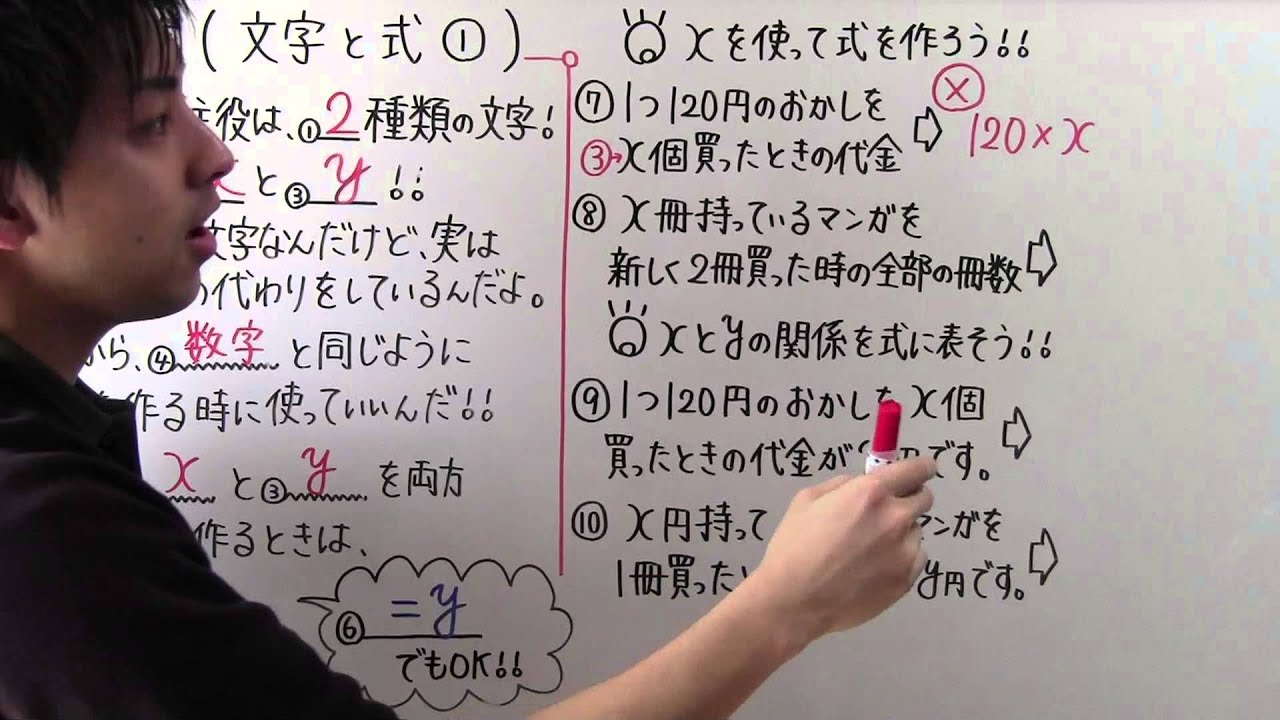 (文字と式①)
主役は、①2種類の文字!
xと③y!!
文字なんだけど、実は
の代わりをしているんだよ。
から、④数字と同じように
を作る時に使っていいんだ!!
xと③yを両方
作るときは、
⑥=y
でもOK!!
xを使って式を作ろう!!
⑦1つ120円のおかしを
③→x個買ったときの代金⇨ⓧ120×x
⑧x冊持っているマンガを
新しく2冊買った時の全部の冊数⇨
xとyの関係を式に表そう!!
⑨1つ120円のおかしをx個
買ったときの代金が です。⇨
⑩x円持って マンガを
1冊買ったと y円です。⇨